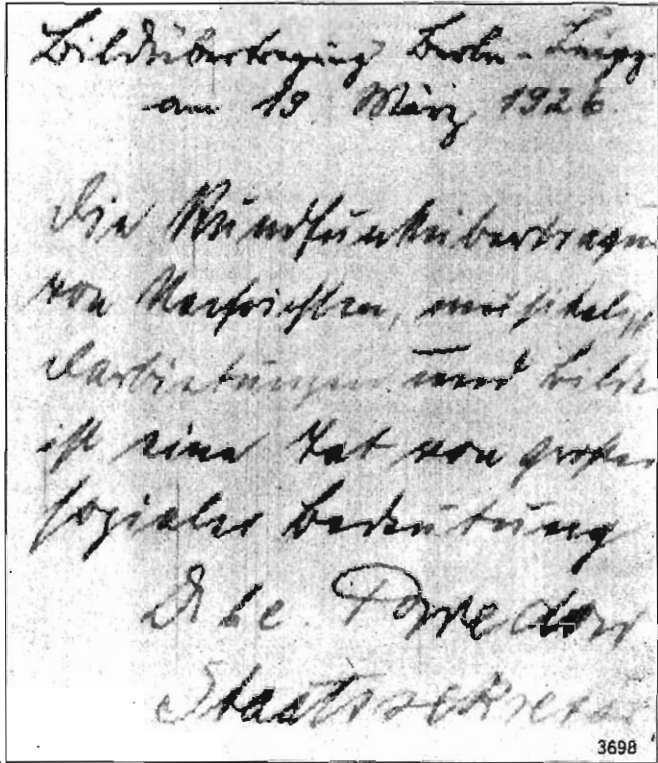 Bildübertragung Berlin-Leipz
am 19 März 1926.
Die Rundfunkübertragun
von Nachrichten, musikalisch
Darbietungen und Bilde
ist eine Tat von großer
sozialer Bedeutung
Staatssekretär
3698